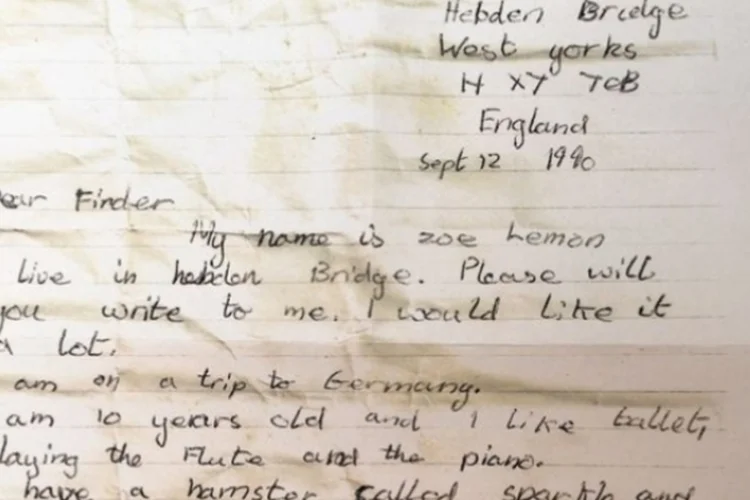 Hebden Bridge
West yorks
H XY 7CB
England
Sept 12 1990
ear Finder
My name is zoe Lemon
Live in hebden Bridge. Please will
you write to me. I would like it
a lot.
am on a trip to Germany.
am 10 years old and I like ballet,
laying the Flute and the piano.
have a hamster called sparkle and